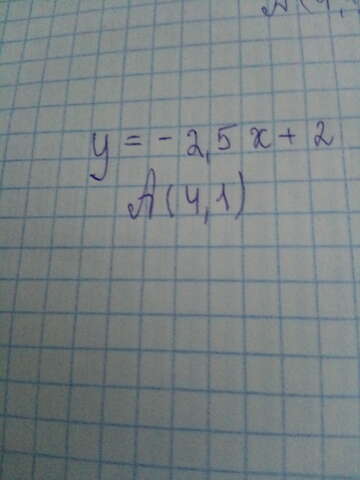 y = - 2,5 x + 2
A(4,1)